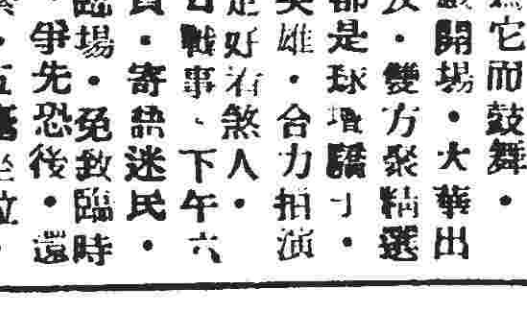 它而鼓舞。
開場。大華出
。雙方聚精選
是球壇驕子。
雄。合力拍演
好看煞人。
戰事、下午六
。寄語迷民。
臨場。免致臨時
爭先恐後。還